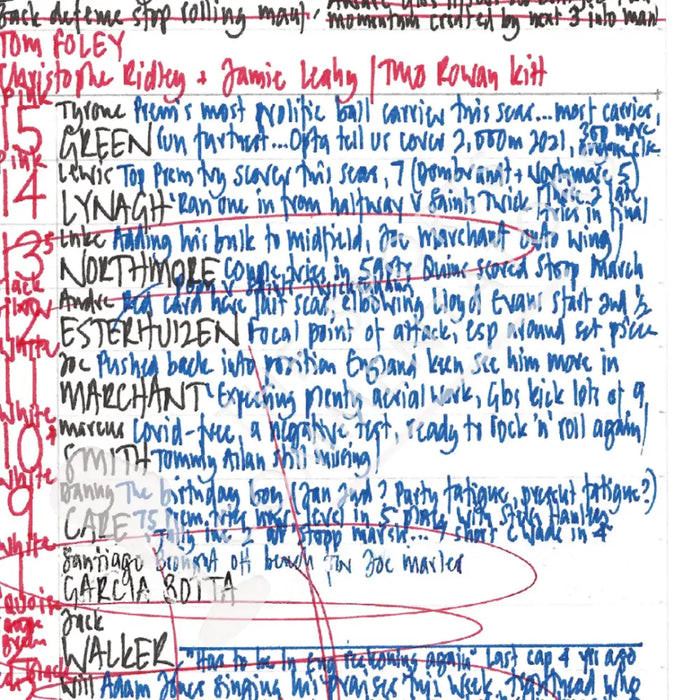 Back defence stop rolling maul,
momentum created by next 3 into maul
TOM FOLEY
Christophe Ridley + Jamie Leahy | TMO Rowan Kitt
Pink
15 Tyrone Prem's most prolific ball carrier this seas... most carries,
GREEN run furthest... Opta tell us cover 2,000m 2021, 300 more
Pink
14 Lewis Top Prem try scorer this seas, 7 (Dombrandt + Northmore 5)
LYNAGH Ran one in from halfway v Saints Twick
tries in final
13 Luke Adding his bulk to midfield, Joe Marchant onto wing
NORTHMORE Couple tries in Quins scored Stoop March
12 Andre Red card here last seas elbowing Lloyd Evans start 2nd ½
ESTERHUIZEN Focal point of attack, esp around set piece
White
11 Joe Pushed back into position England keen see him more in
MARCHANT Expecting plenty aerial work, Glos kick lots of 9
White
10 Marcus Covid-free, a negative test, ready to rock 'n' roll again
SMITH Tommy Allan still missing
White
9 Danny The birthday boy (Jan 2nd? Party fatigue, present fatigue?)
CARE 75 Prem tries level in 5th place with Steve Hanley
White
Santiago Brought off bench for Joe Marler
GARCIA BOTTA
Jack
WALKER "Has to be in Eng reckoning again" last cap 4 yrs ago
Will Adam Jones singing his praises this week, tighthead who